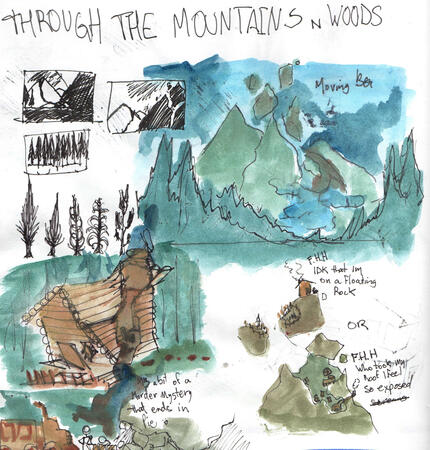 THROUGH THE MOUNTAINS N WOODS
Moving
F.H.H
IDK that im
on a Floating
Rock
OR
F.H.H
Who took my
Roof I feel
so exposed
A bit of a
Murder Mystery
that ends in